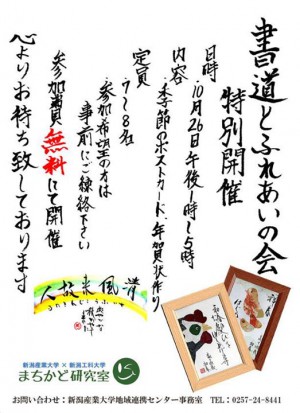 書道とふれあいの会
特別開催
日時
10月26日午後1時〜5時
内容
・季節のポストカード・年賀状作り
定員
・7〜8名
・参加希望の方は
事前にご連絡下さい
参加費無料にて開催
心よりお待ち致しております
人故来風清
新潟産業大学 × 新潟工科大学
まちかど研究室
お問い合わせ：新潟産業大学地域連携センター事務室 TEL：0257-24-8441